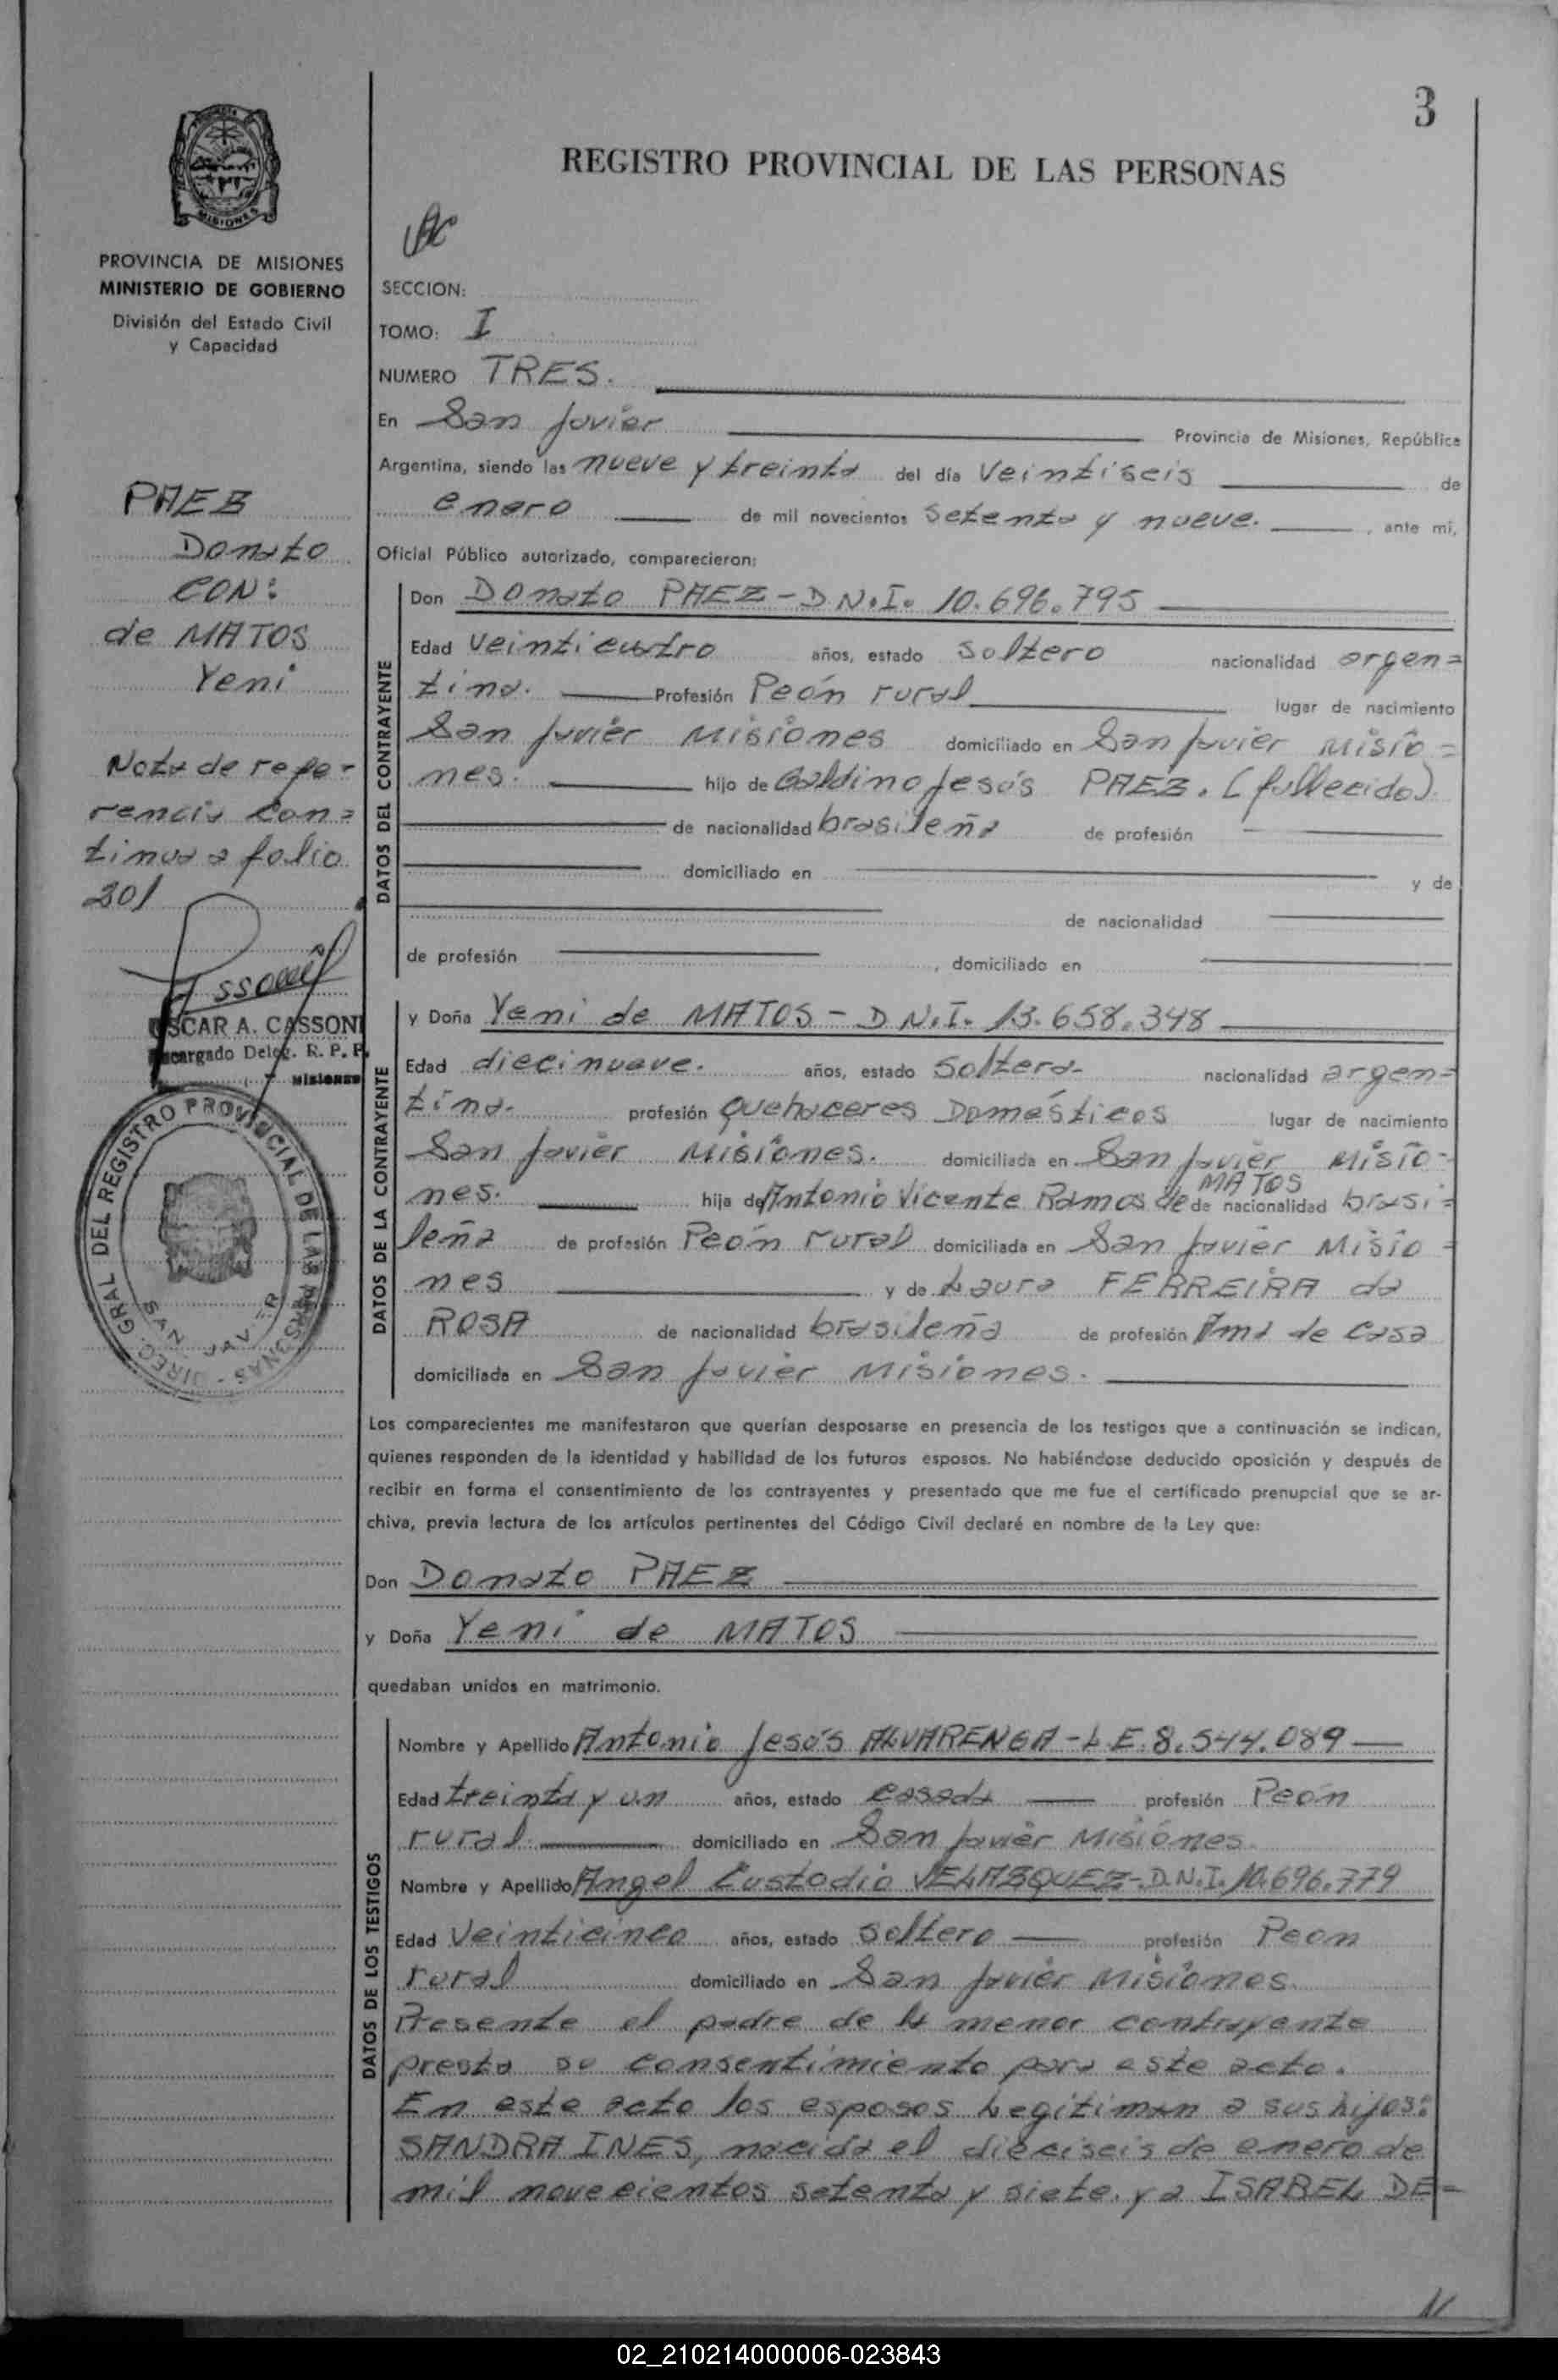 3
REGISTRO PROVINCIAL DE LAS PERSONAS
MISIONES
PROVINCIA DE MISIONES
MINISTERIO DE GOBIERNO
División del Estado Civil
y Capacidad
SECCION:
TOMO: I
NUMERO TRES.
En San Javier Provincia de Misiones, República
Argentina, siendo las nueve y treinta del día veintiseis de
enero de mil novecientos setenta y nueve. , ante mí,
Oficial Público autorizado, comparecieron:
PAEZ
Donato
CON:
de MATOS
Yeni
Nota de refe-
rencia con=
tinua a folio
201
OSCAR A. CASSONI
Encargado Deleg. R. P. P.
Misiones
DIREC. GRAL DEL REGISTRO PROVINCIAL DE LAS PERSONAS
SAN JAVIER
DATOS DEL CONTRAYENTE
Don Donato PAEZ - D.N.I. 10.696.795
Edad veinticuatro años, estado soltero nacionalidad argen=
tina. Profesión Peón rural lugar de nacimiento
San Javier Misiones domiciliado en San Javier Misio=
nes. hijo de Galdino Jesús PAEZ. (fallecido)
de nacionalidad brasileña de profesión
domiciliado en y de
de nacionalidad
de profesión , domiciliado en
DATOS DE LA CONTRAYENTE
y Doña Yeni de MATOS - D.N.I. 13.658.348
Edad diecinueve. años, estado soltera- nacionalidad argen=
tina. profesión quehaceres Domésticos lugar de nacimiento
San Javier Misiones. domiciliada en San Javier Misio-
nes. hija de Antonio Vicente Ramos de MATOS de nacionalidad brasi=
leña de profesión Peón rural domiciliada en San Javier Misio=
nes y de Laura FERREIRA da
ROSA de nacionalidad brasileña de profesión Ama de casa
domiciliada en San Javier Misiones.
Los comparecientes me manifestaron que querían desposarse en presencia de los testigos que a continuación se indican,
quienes responden de la identidad y habilidad de los futuros esposos. No habiéndose deducido oposición y después de
recibir en forma el consentimiento de los contrayentes y presentado que me fue el certificado prenupcial que se ar-
chiva, previa lectura de los artículos pertinentes del Código Civil declaré en nombre de la Ley que:
Don Donato PAEZ
y Doña Yeni de MATOS
quedaban unidos en matrimonio.
DATOS DE LOS TESTIGOS
Nombre y Apellido Antonio Jesús ALVARENGA - L.E. 8.544.089
Edad treinta y un años, estado casado profesión Peón
rural. domiciliado en San Javier Misiones.
Nombre y Apellido Angel Custodio VELAZQUEZ - D.N.I. 10.696.779
Edad veinticinco años, estado soltero profesión Peon
rural domiciliado en San Javier Misiones.
Presente el padre de la menor contrayente
presta su consentimiento para este acto.
En este acto los esposos Legitiman a sus hijos:
SANDRA INES, nacida el dieciseis de enero de
mil novecientos setenta y siete. y a ISABEL DE=
02_210214000006-023843